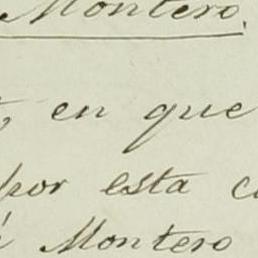 Montero.
en que
por esta
Montero